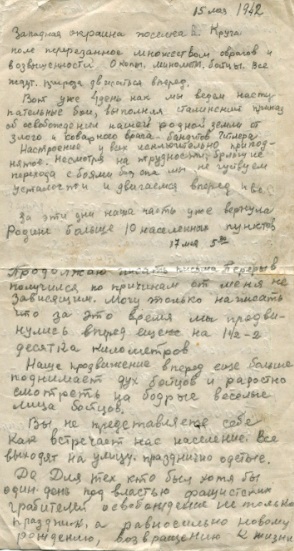 15 мая 1942
Западная окраина поселка. Кругом
поле перерезанное множеством оврагов и
возвышенностей. Окопы, минометы, бойцы. Все
ждут приказа двигаться вперед.
Вот уже день как мы ведем насту
пательные бои, выполняя сталинский приказ
об освобождении нашей родной земли от
злого и коварного врага - бандитов Гитлера
Настроение у всех исключительно припод-
нятое. Несмотря на трудности
перехода с боями мы не чувствуем
усталости и двигаемся вперед
За эти дни наша часть уже вернула
Родине больше 10 населенных пунктов
17 мая
Продолжаю писать письмо. Перерыв
получился по причинам от меня не
зависящим. Могу только написать
что за это время мы продви-
нулись вперед еще на 1½-2
десятка километров
Наше продвижение вперед еще больше
поднимает дух бойцов и радостно
смотреть на бодрые веселые
лица бойцов.
Вы не представляете себе
как встречает нас население. Все
выходят на улицу празднично одетые.
Да Для тех кто был хотя бы
один день под властью фашистских
грабителей освобождение не только
праздник, а равносильно новому
рождению, возвращению к жизни